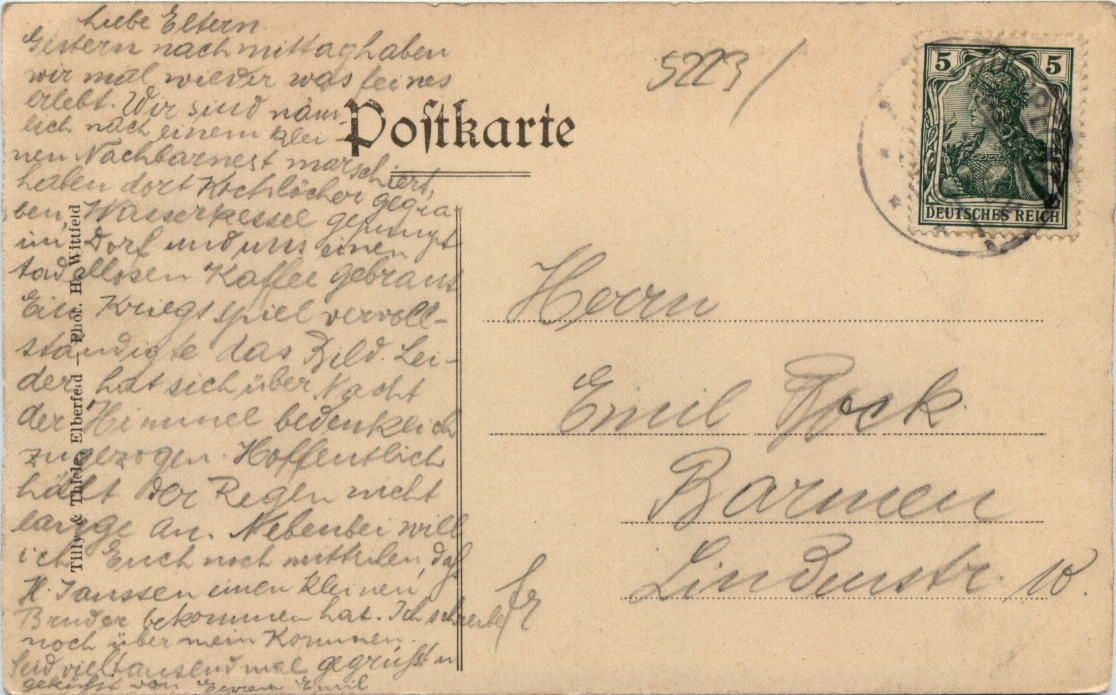 Liebe Eltern.
Gestern nachmittag haben
wir mal wieder was feines
erlebt. Wir sind näm
lich nach einem klei
nen Nachbarnest marschiert,
haben dort Kochlöcher gegra
ben, Wasserkessel gepumpt
im Dorf und uns einen
tadellosen Kaffee gebraut
Ein Kriegsspiel vervoll-
ständigte das Bild. Lei-
der hat sich über Nacht
der Himmel bedenklich
zugezogen. Hoffentlich
hält der Regen nicht
lange an. Nebenbei will
ich Euch noch mitteilen, daß
H. Janssen einen kleinen
Bruder bekommen hat. Ich schreibe
noch über mein Kommen.
Seid vieltausendmal gegrüßt u
geküßt von Eurem Emil
Tilly & Thiele, Elberfeld — Phot. H. Wittfeld
Postkarte
5223/
5 5
DEUTSCHES REICH
Herrn
Emil Bock
Barmen
Lindenstr. 10